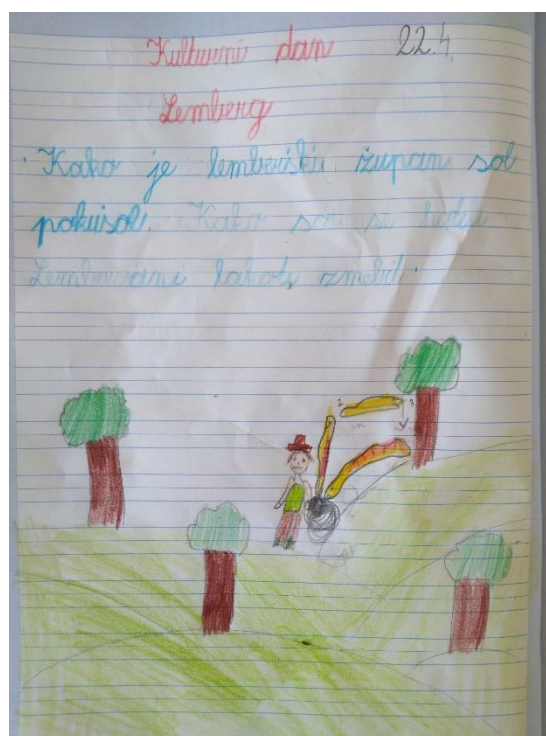 Kulturni dan 22.4.
Lemberg
Kako je lemberški župan sol
pokusol. Kako so se hoteli
Lemberžani lakote znebiti.
2 3